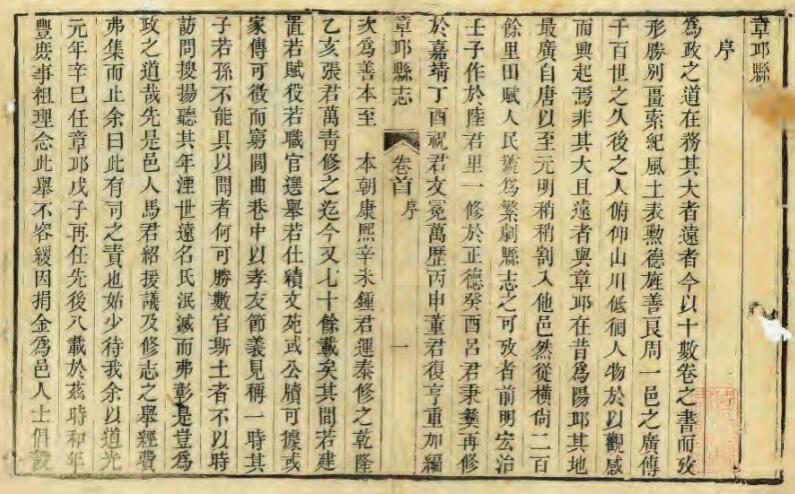 章邱縣志
序
為政之道在務其大者遠者今以十數卷之書而攷
形勝别畺索紀風土表勲德旌善良周一邑之廣傳
千百世之久後之人俯仰山川低徊人物於以觀感
而興起焉非其大且遠者與章邱在昔為陽邱其地
最廣自唐以至元明稍稍割入他邑然從橫尙二百
餘里田賦人民號為繁劇縣志之可攷者前明宏治
壬子作於陸君里一修於正德癸酉呂君秉彝再修
於嘉靖丁酉祝君文冕萬歴丙申董君復亨重加編
章邱縣志 卷首 序 一
次為善本至 本朝康熙辛未鍾君運泰修之乾隆
乙亥張君萬青修之迄今又七十餘載矣其間若建
置若賦役若職官選舉若仕績文苑或公牘可據或
家傳可徵而窮閻曲巷中以孝友節義見稱一時其
子若孫不能具以聞者何可勝數官斯土者不以時
訪問搜揚聽其年湮世遠名氏泯滅而弗彰是豈為
政之道哉先是邑人馬君紹援議及修志之舉經費
弗集而止余曰此有司之責也始少待我余以道光
元年辛巳任章邱戊子再任先後八載於茲時和年
豐庶事粗理念此舉不容緩因捐金為邑人士倡